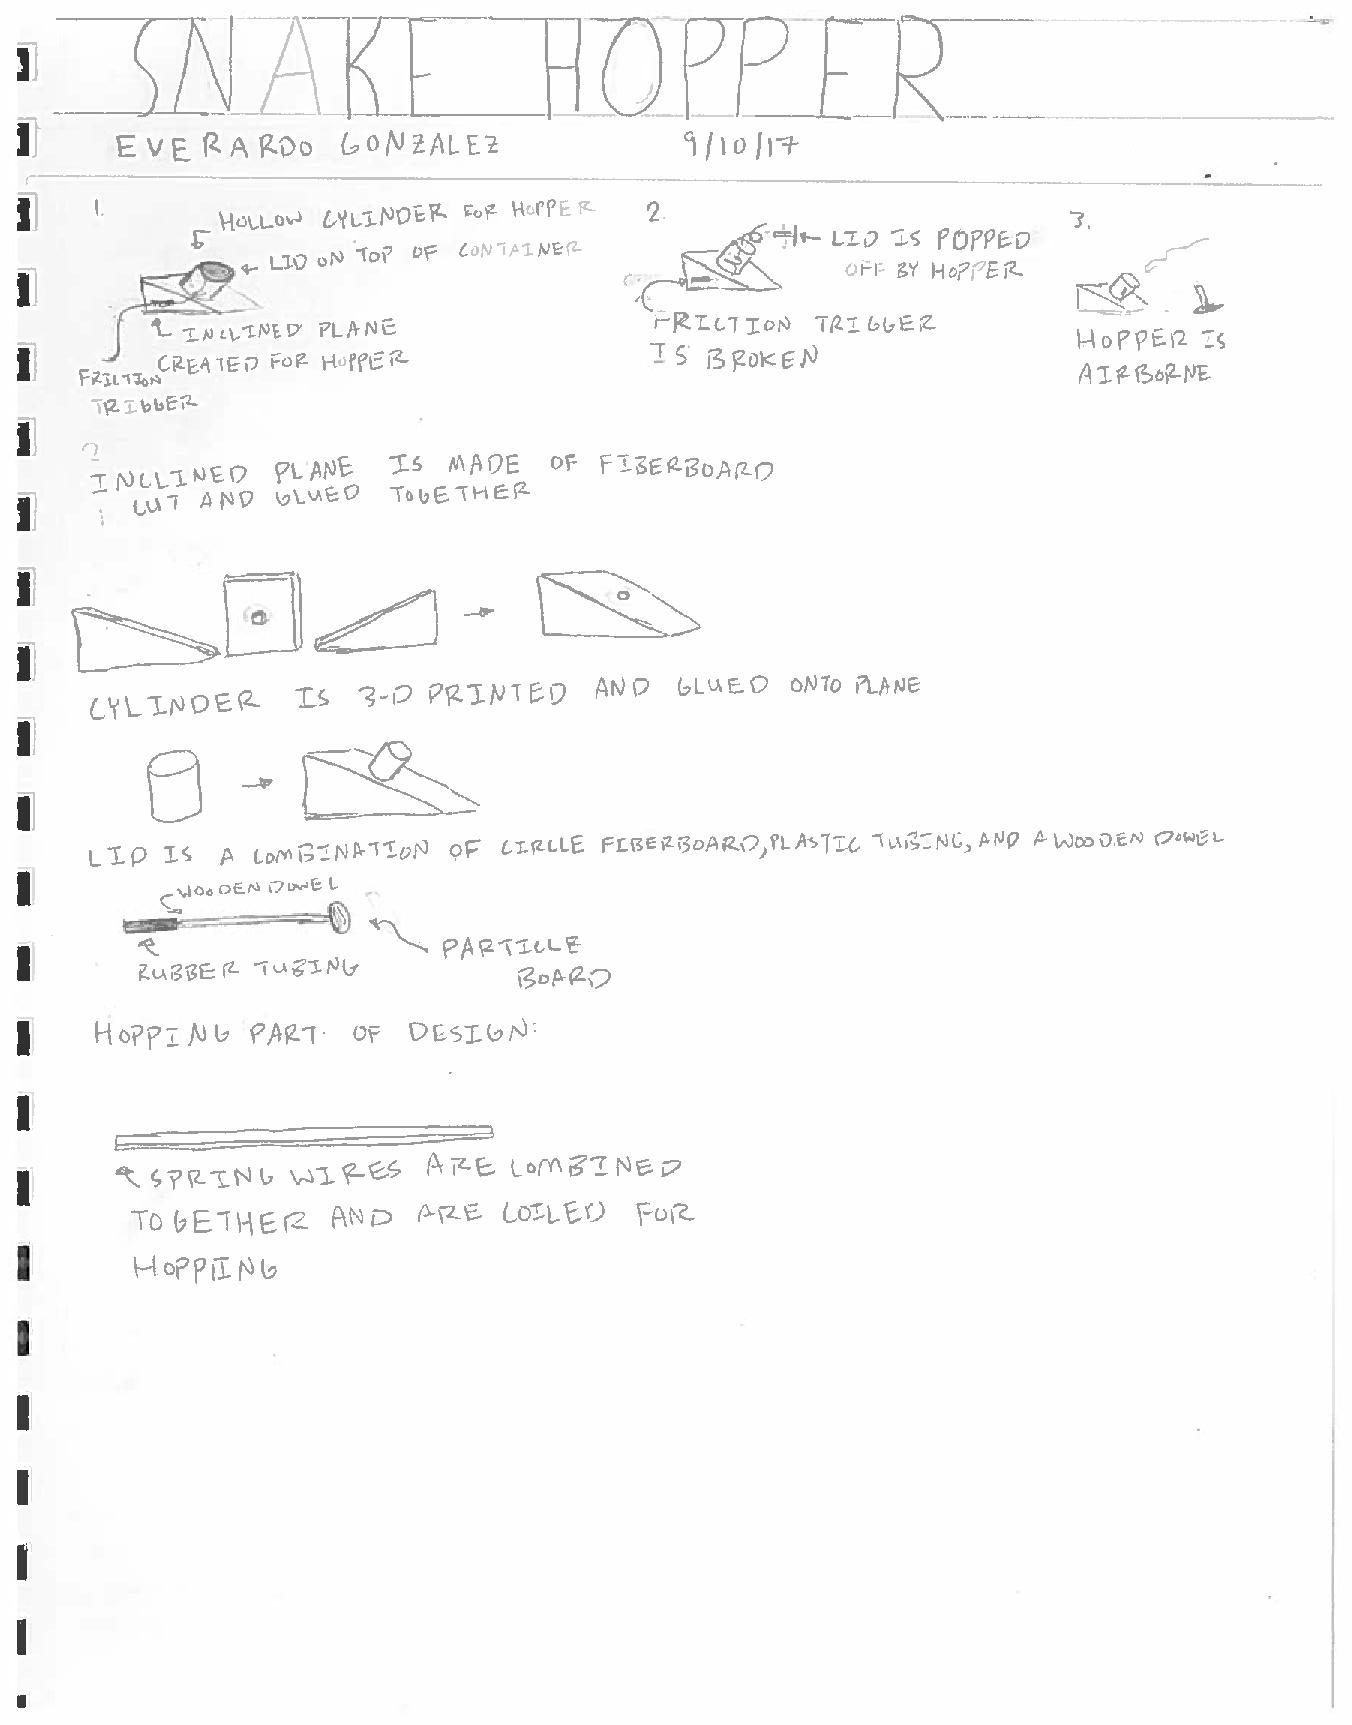 SNAKE HOPPER
EVERARDO GONZALEZ 9/10/17
1.
HOLLOW CYLINDER FOR HOPPER
LID ON TOP OF CONTAINER
INCLINED PLANE
CREATED FOR HOPPER
FRICTION
TRIGGER
2.
LID IS POPPED
OFF BY HOPPER
FRICTION TRIGGER
IS BROKEN
3.
HOPPER IS
AIRBORNE
INCLINED PLANE IS MADE OF FIBERBOARD
CUT AND GLUED TOGETHER
CYLINDER IS 3-D PRINTED AND GLUED ONTO PLANE
LID IS A COMBINATION OF CIRCLE FIBERBOARD, PLASTIC TUBING, AND A WOODEN DOWEL
WOODEN DOWEL
RUBBER TUBING
PARTICLE
BOARD
HOPPING PART OF DESIGN:
SPRING WIRES ARE COMBINED
TOGETHER AND ARE COILED FOR
HOPPIING